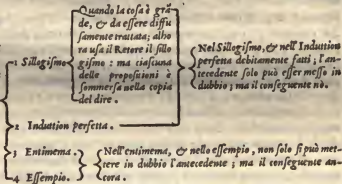 Quando la cosa è grã
de, & da essere diffu
samente trattata; alho
ra usa il Retore il sillo
gismo: ma ciascuna
delle proposizioni è
sommersa nella copia
del dire.
1 Sillogismo
Nel Sillogismo, & nell'Induttion
perfetta debitamente fatti; l'an-
tecedente solo può esser messo in
dubbio; ma il conseguente nò.
2 Induttion perfetta.
3 Entimema.
4 Essempio.
Nell'entimema, & nello essempio, non solo si può met-
tere in dubbio l'antecedente; ma il conseguente an-
cora.